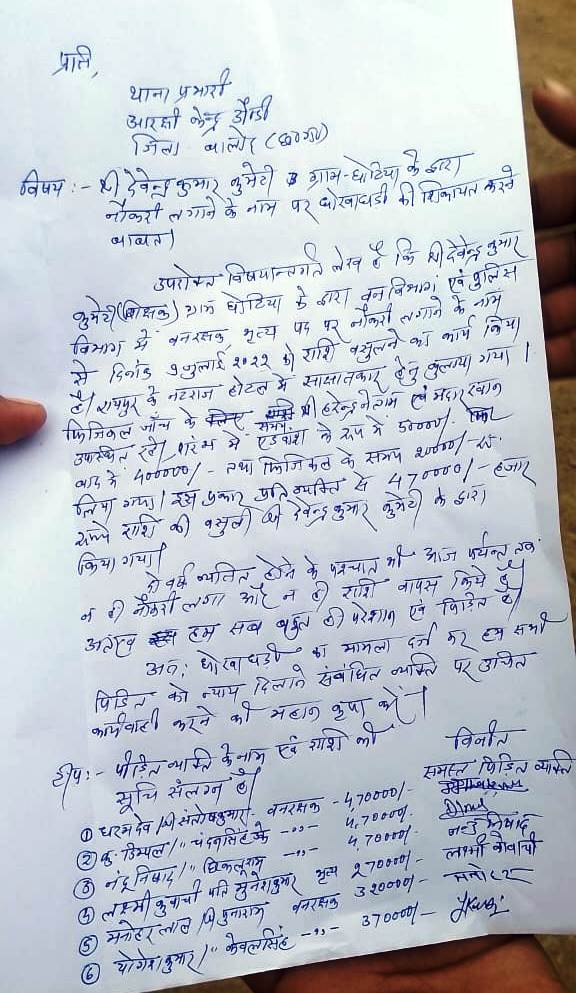 प्रति,
थाना प्रभारी
आरक्षी केन्द्र डौण्डी
जिला बालोद (छ०ग०)
विषय :- श्री देवेन्द्र कुमार कुमेटी ग्राम-घोटिया के द्वारा
नौकरी लगाने के नाम पर धोखाधडी की शिकायत करने
बाबत।
उपरोक्त विषयान्तर्गत लेख है कि श्री देवेन्द्र कुमार
कुमेटी (शिक्षक) ग्राम घोटिया के द्वारा वन विभाग एवं पुलिस
विभाग में वनरक्षक, भृत्य पद पर नौकरी लगाने के नाम
से दिनांक 9 जुलाई 2022 को राशि वसुलने का कार्य किया
है। रायपुर के नटराज होटल में साक्षातकार हेतु बुलाया गया।
फिजिकल जाँच के समय श्री हरेन्द्र नेताम एवं मदार खान
उपस्थित रहे। प्रारंभ में एडवांस के रूप में 50000/-
बाद में 400000/- तथा फिजिकल के समय 20000/- रू.
लिया गया। इस प्रकार प्रति व्यक्ति से 470000/- हजार
रूपये राशि की वसुली श्री देवेन्द्र कुमार कुमेटी के द्वारा
किया गया।
दो वर्ष व्यतित होने के पश्चात भी आज पर्यन्त तक
न ही नौकरी लगा और न ही राशि वापस किये है
अतएव हम सब बहुत ही परेशान एवं पिडित है।
अतः धोखाधडी का मामला दर्ज कर हम सभी
पिडित को न्याय दिलाने संबंधित व्यक्ति पर उचित
कार्यवाही करने की महान कृपा करें।
टीप :- पीडित व्यक्ति के नाम एवं राशि की
सूचि संलग्न है।
विनीत
समस्त पिडित व्यक्ति
① धरमदेव / श्री संतोषकुमार वनरक्षक - 4,70000/-
② कु. डिम्पल / " चंदनसिंह -"- 4,70000/-
③ नंदू निषाद / " -"- 4,70000/- नन्दू निषाद
④ लक्ष्मी कुवाची पति मुनेशकुमार भृत्य 270000/- लक्ष्मी कोवाची
⑤ मनोहर लाल / श्री पुनाराम वनरक्षक 320000/- मनोहर
⑥ योगेश कुमार / " केवलसिंह -"- 370000/-